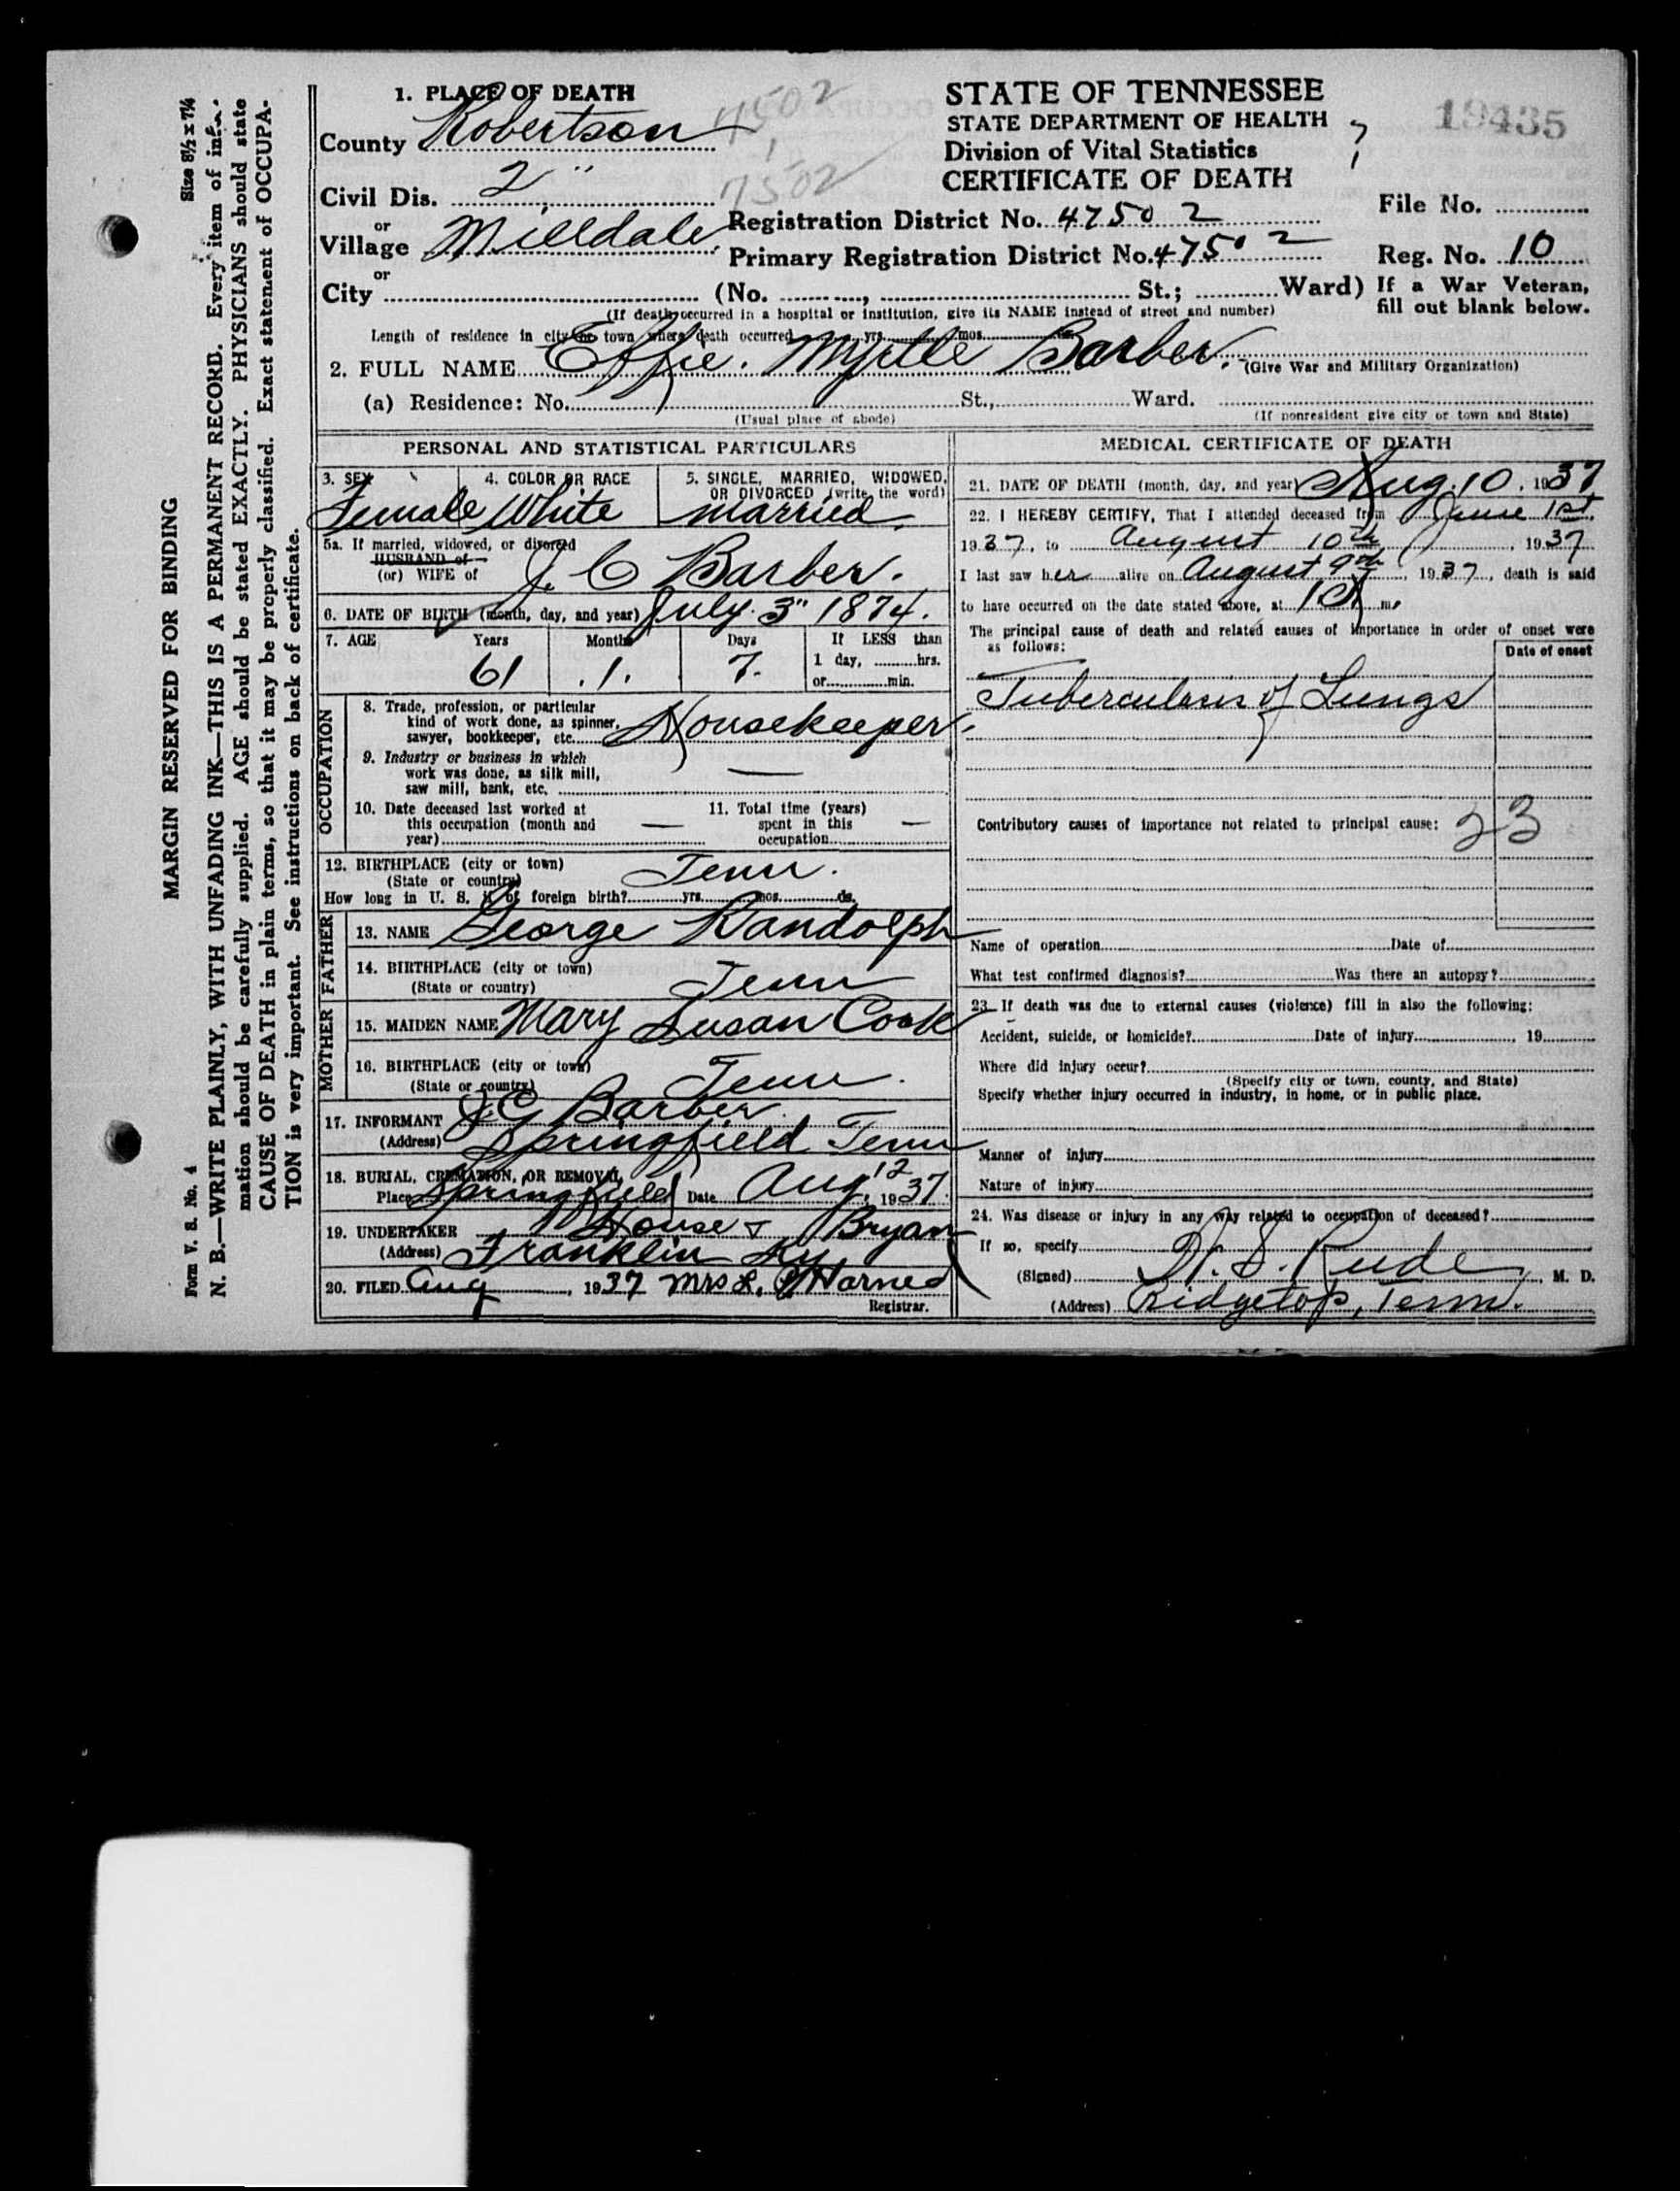 MARGIN RESERVED FOR BINDING
Size 8½ x 7¼
N. B.—WRITE PLAINLY, WITH UNFADING INK—THIS IS A PERMANENT RECORD. Every item of infor-
mation should be carefully supplied. AGE should be stated EXACTLY. PHYSICIANS should state
CAUSE OF DEATH in plain terms, so that it may be properly classified. Exact statement of OCCUPA-
TION is very important. See instructions on back of certificate.
Form V. S. No. 4
1. PLACE OF DEATH
County Robertson
4502
1
7502
Civil Dis. 2"
or
Village Milldale
or
City (No. , St.; Ward)
STATE OF TENNESSEE
STATE DEPARTMENT OF HEALTH
Division of Vital Statistics
CERTIFICATE OF DEATH
19435
Registration District No. 4750 2
File No.
Primary Registration District No. 4750 2
Reg. No. 10
If a War Veteran,
fill out blank below.
(If death occurred in a hospital or institution, give its NAME instead of street and number)
Length of residence in city or town where death occurred yrs. mos.
2. FULL NAME Effie. Myrtle Barber.
(Give War and Military Organization)
(a) Residence: No. St., Ward.
(Usual place of abode)
(If nonresident give city or town and State)
PERSONAL AND STATISTICAL PARTICULARS
3. SEX Female
4. COLOR OR RACE White
5. SINGLE, MARRIED, WIDOWED, OR DIVORCED (write the word) married.
5a. If married, widowed, or divorced
HUSBAND of
(or) WIFE of J. C Barber.
6. DATE OF BIRTH (month, day, and year) July. 3" 1874.
7. AGE Years 61 Months .1. Days 7. If LESS than
1 day, hrs.
or min.
OCCUPATION
8. Trade, profession, or particular
kind of work done, as spinner,
sawyer, bookkeeper, etc. Housekeeper.
9. Industry or business in which
work was done, as silk mill,
saw mill, bank, etc. —
10. Date deceased last worked at
this occupation (month and
year) —
11. Total time (years)
spent in this
occupation —
12. BIRTHPLACE (city or town)
(State or country) Tenn.
How long in U. S. if of foreign birth? yrs. mos. ds.
FATHER
13. NAME George Randolph
14. BIRTHPLACE (city or town)
(State or country) Tenn
MOTHER
15. MAIDEN NAME Mary Susan Cook
16. BIRTHPLACE (city or town)
(State or country) Tenn.
17. INFORMANT J C Barber
(Address) Springfield Tenn
18. BURIAL, CREMATION, OR REMOVAL
Place Springfield Date Aug. 12 1937.
19. UNDERTAKER House & Bryan
(Address) Franklin Ky
20. FILED Aug , 1937 Mrs L. Y Harned
Registrar.
MEDICAL CERTIFICATE OF DEATH
21. DATE OF DEATH (month, day, and year) Aug. 10. 1937
22. I HEREBY CERTIFY, That I attended deceased from June 1st,
1937, to August 10th, 1937
I last saw her alive on August 9th, 1937, death is said
to have occurred on the date stated above, at m.
The principal cause of death and related causes of importance in order of onset were
as follows:
Date of onset
Tuberculosis of Lungs
Contributory causes of importance not related to principal cause:
23
Name of operation Date of
What test confirmed diagnosis? Was there an autopsy?
23. If death was due to external causes (violence) fill in also the following:
Accident, suicide, or homicide? Date of injury , 19
Where did injury occur?
(Specify city or town, county, and State)
Specify whether injury occurred in industry, in home, or in public place.
Manner of injury
Nature of injury
24. Was disease or injury in any way related to occupation of deceased?
If so, specify
(Signed) H. S. Rude, M. D.
(Address) Ridgetop, Tenn.